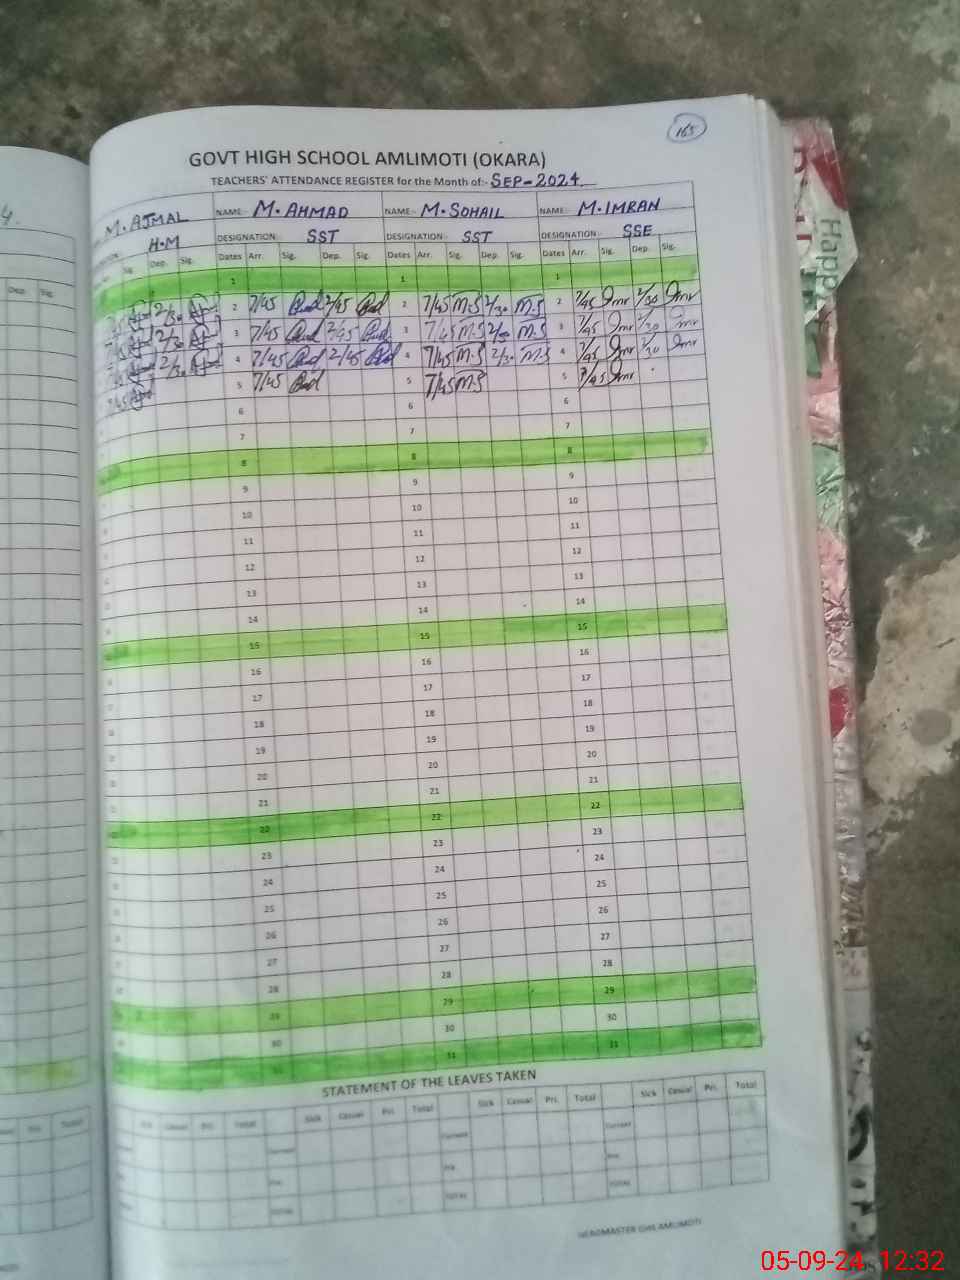 165
GOVT HIGH SCHOOL AMLIMOTI (OKARA)
TEACHERS' ATTENDANCE REGISTER for the Month of:- SEP-2024
M. AJMAL NAME:- M. AHMAD NAME:- M. SOHAIL NAME:- M. IMRAN
H.M DESIGNATION:- SST DESIGNATION:- SST DESIGNATION:- SSE
Sig. Dep. Sig. Dates Arr. Sig. Dep. Sig. Dates Arr. Sig. Dep. Sig. Dates Arr. Sig. Dep. Sig.
1 1 1
2/30 2 7/45 2/45 2 7/45 M.S 2/30 M.S 2 7/45 Imr 2/30 Imr
2/30 3 7/45 2/45 3 7/45 M.S 2/30 M.S 3 7/45 Imr 2/30 Imr
2/30 4 7/45 2/45 4 7/45 M.S 2/30 M.S 4 7/45 Imr 2/30 Imr
7/45 5 7/45 5 7/45 M.S 5 7/45 Imr
6 6 6
7 7 7
8 8 8
9 9 9
10 10 10
11 11 11
12 12 12
13 13 13
14 14 14
15 15 15
16 16 16
17 17 17
18 18 18
19 19 19
20 20 20
21 21 21
22 22 22
23 23 23
24 24 24
25 25 25
26 26 26
27 27 27
28 28 28
29 29 29
30 30 30
31 31 31
STATEMENT OF THE LEAVES TAKEN
Sick Casual Pri. Total Sick Casual Pri. Total Sick Casual Pri. Total Sick Casual Pri. Total
Current Current Current
Pre. Pre. Pre.
TOTAL TOTAL TOTAL
HEADMASTER GHS AMLIMOTI
Dep. Sig.
Pri. Total
Happ
05-09-24 12:32